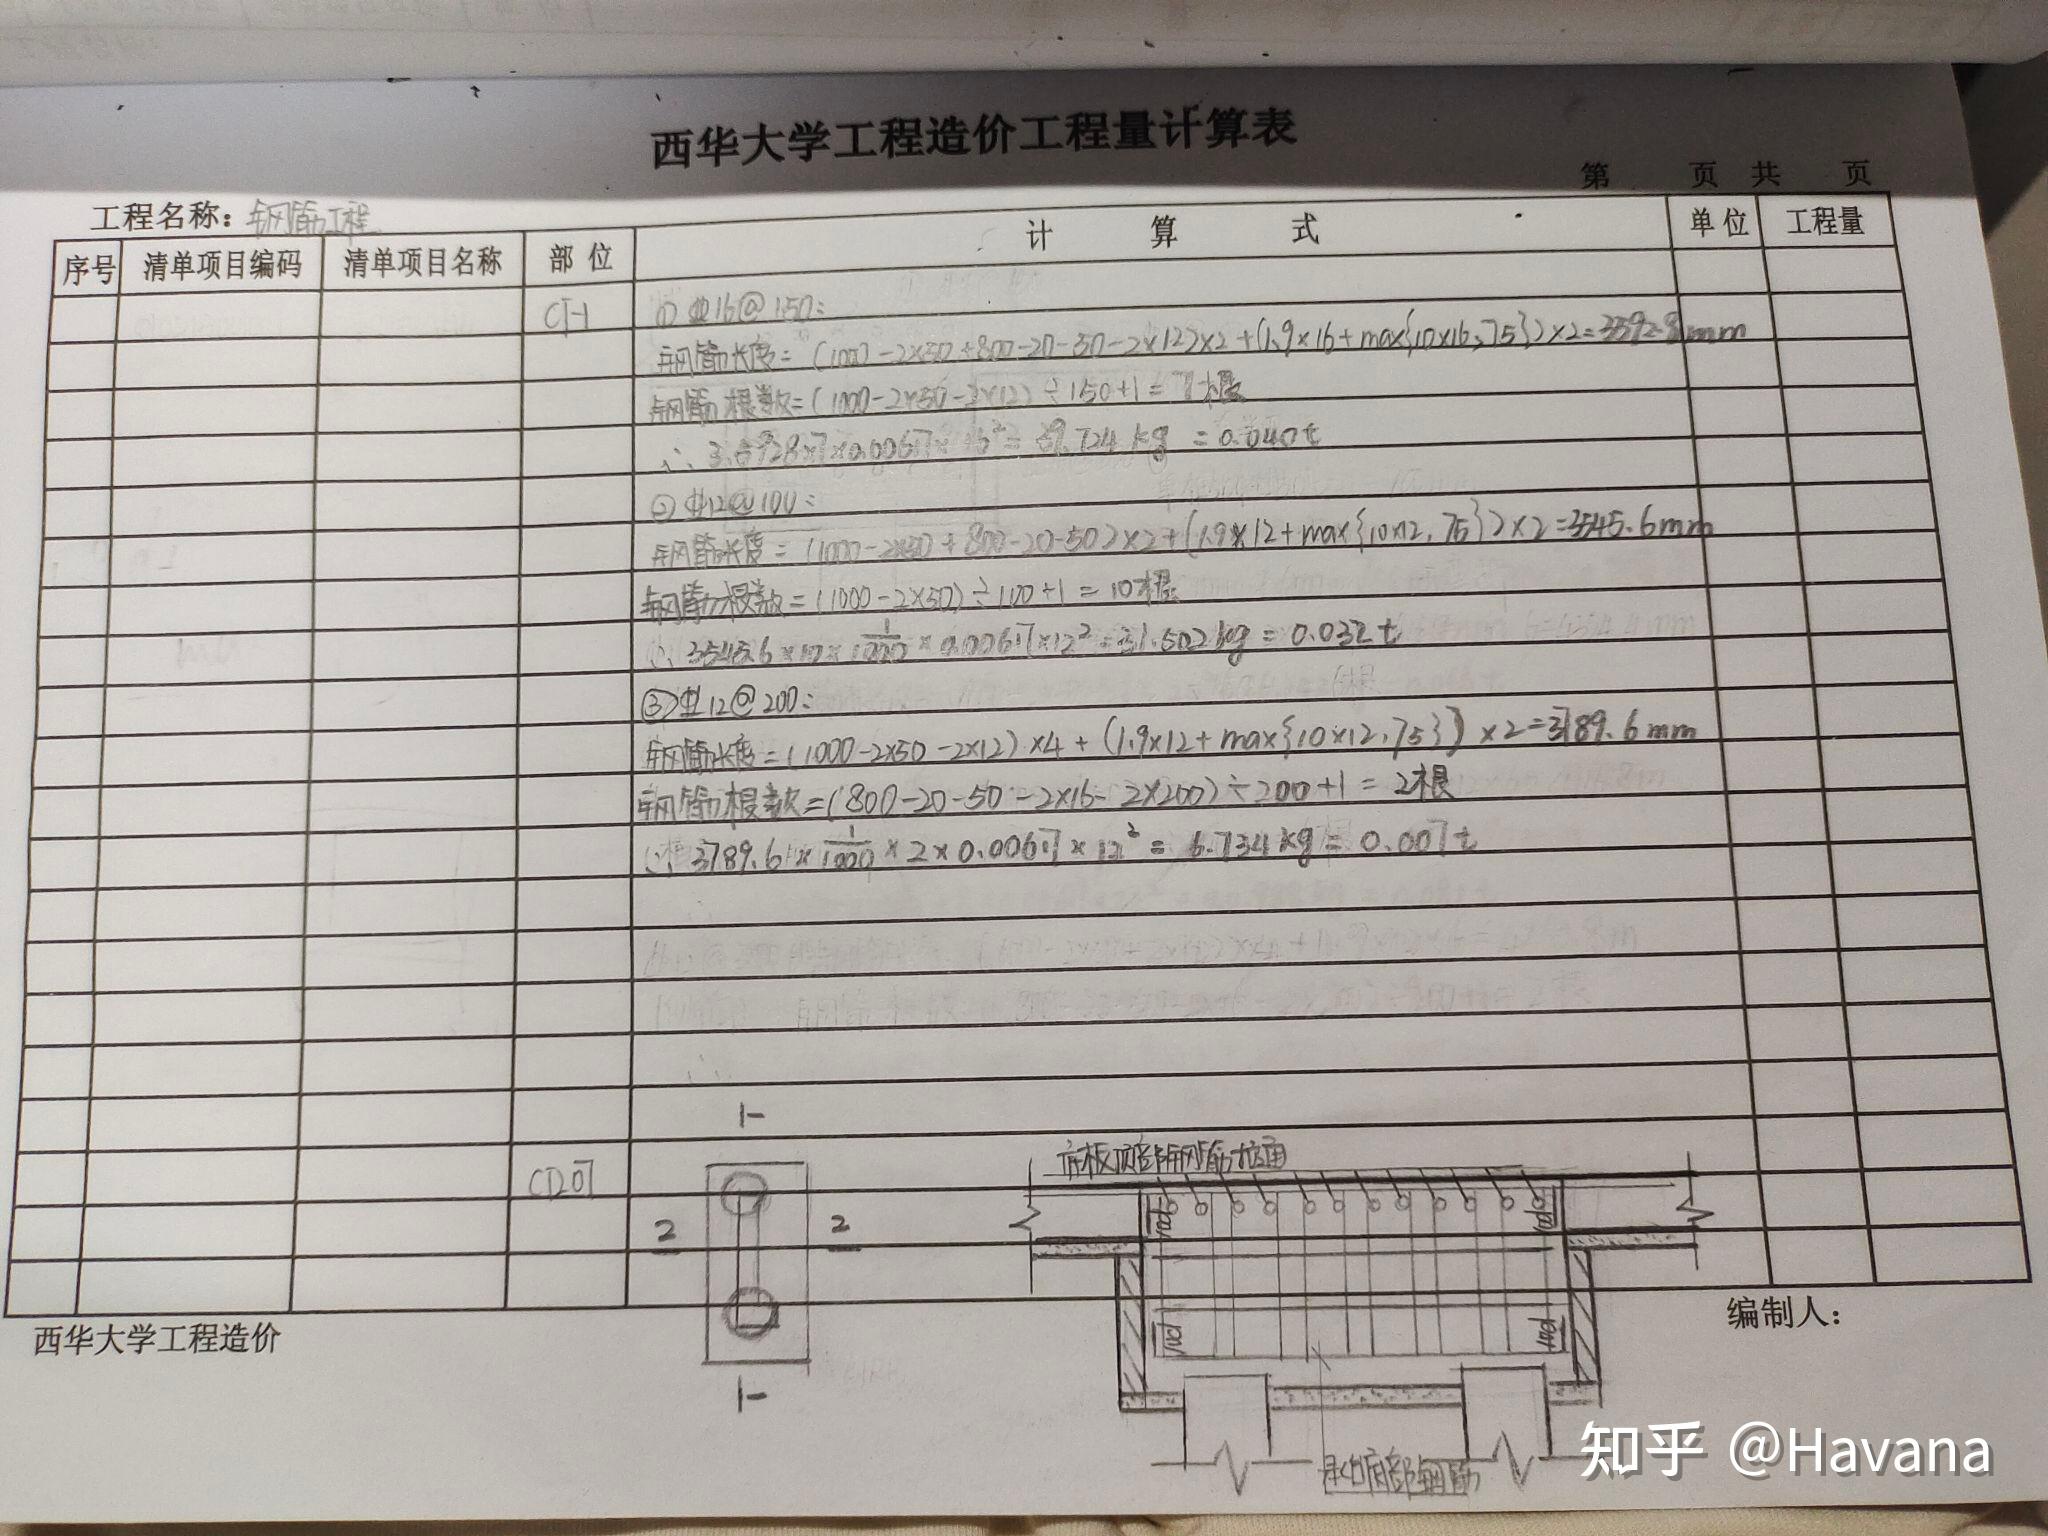 西华大学工程造价工程量计算表
第 页 共 页
工程名称：钢筋工程
序号 清单项目编码 清单项目名称 部 位 计 算 式 单 位 工程量
CT-1 ① ⌀16@150：
钢筋长度=(1000-2×50+800-20-50-2×12)×2+(1.9×16+max{10×16,75})×2=3592.8mm
钢筋根数=(1000-2×50-2×12)÷150+1=7根
∴ 3.5928×7×0.00617×16²=39.724kg=0.040t
② ⌀12@100：
钢筋长度=(1000-2×50+800-20-50)×2+(1.9×12+max{10×12,75})×2=3545.6mm
钢筋根数=(1000-2×50)÷100+1=10根
∴ 3545.6×10×1/1000×0.00617×12²=31.502kg=0.032t
③ ⌀12@200：
钢筋长度=(1000-2×50-2×12)×4+(1.9×12+max{10×12,75})×2=3789.6mm
钢筋根数=(800-20-50-2×16-2×200)÷200+1=2根
∴ 3789.6×1/1000×2×0.00617×12²=6.734kg=0.007t
1-
底板顶部钢筋拉通
2 2
10d 10d
10d 10d
1-
承台底部钢筋
西华大学工程造价
编制人：
知乎 @Havana